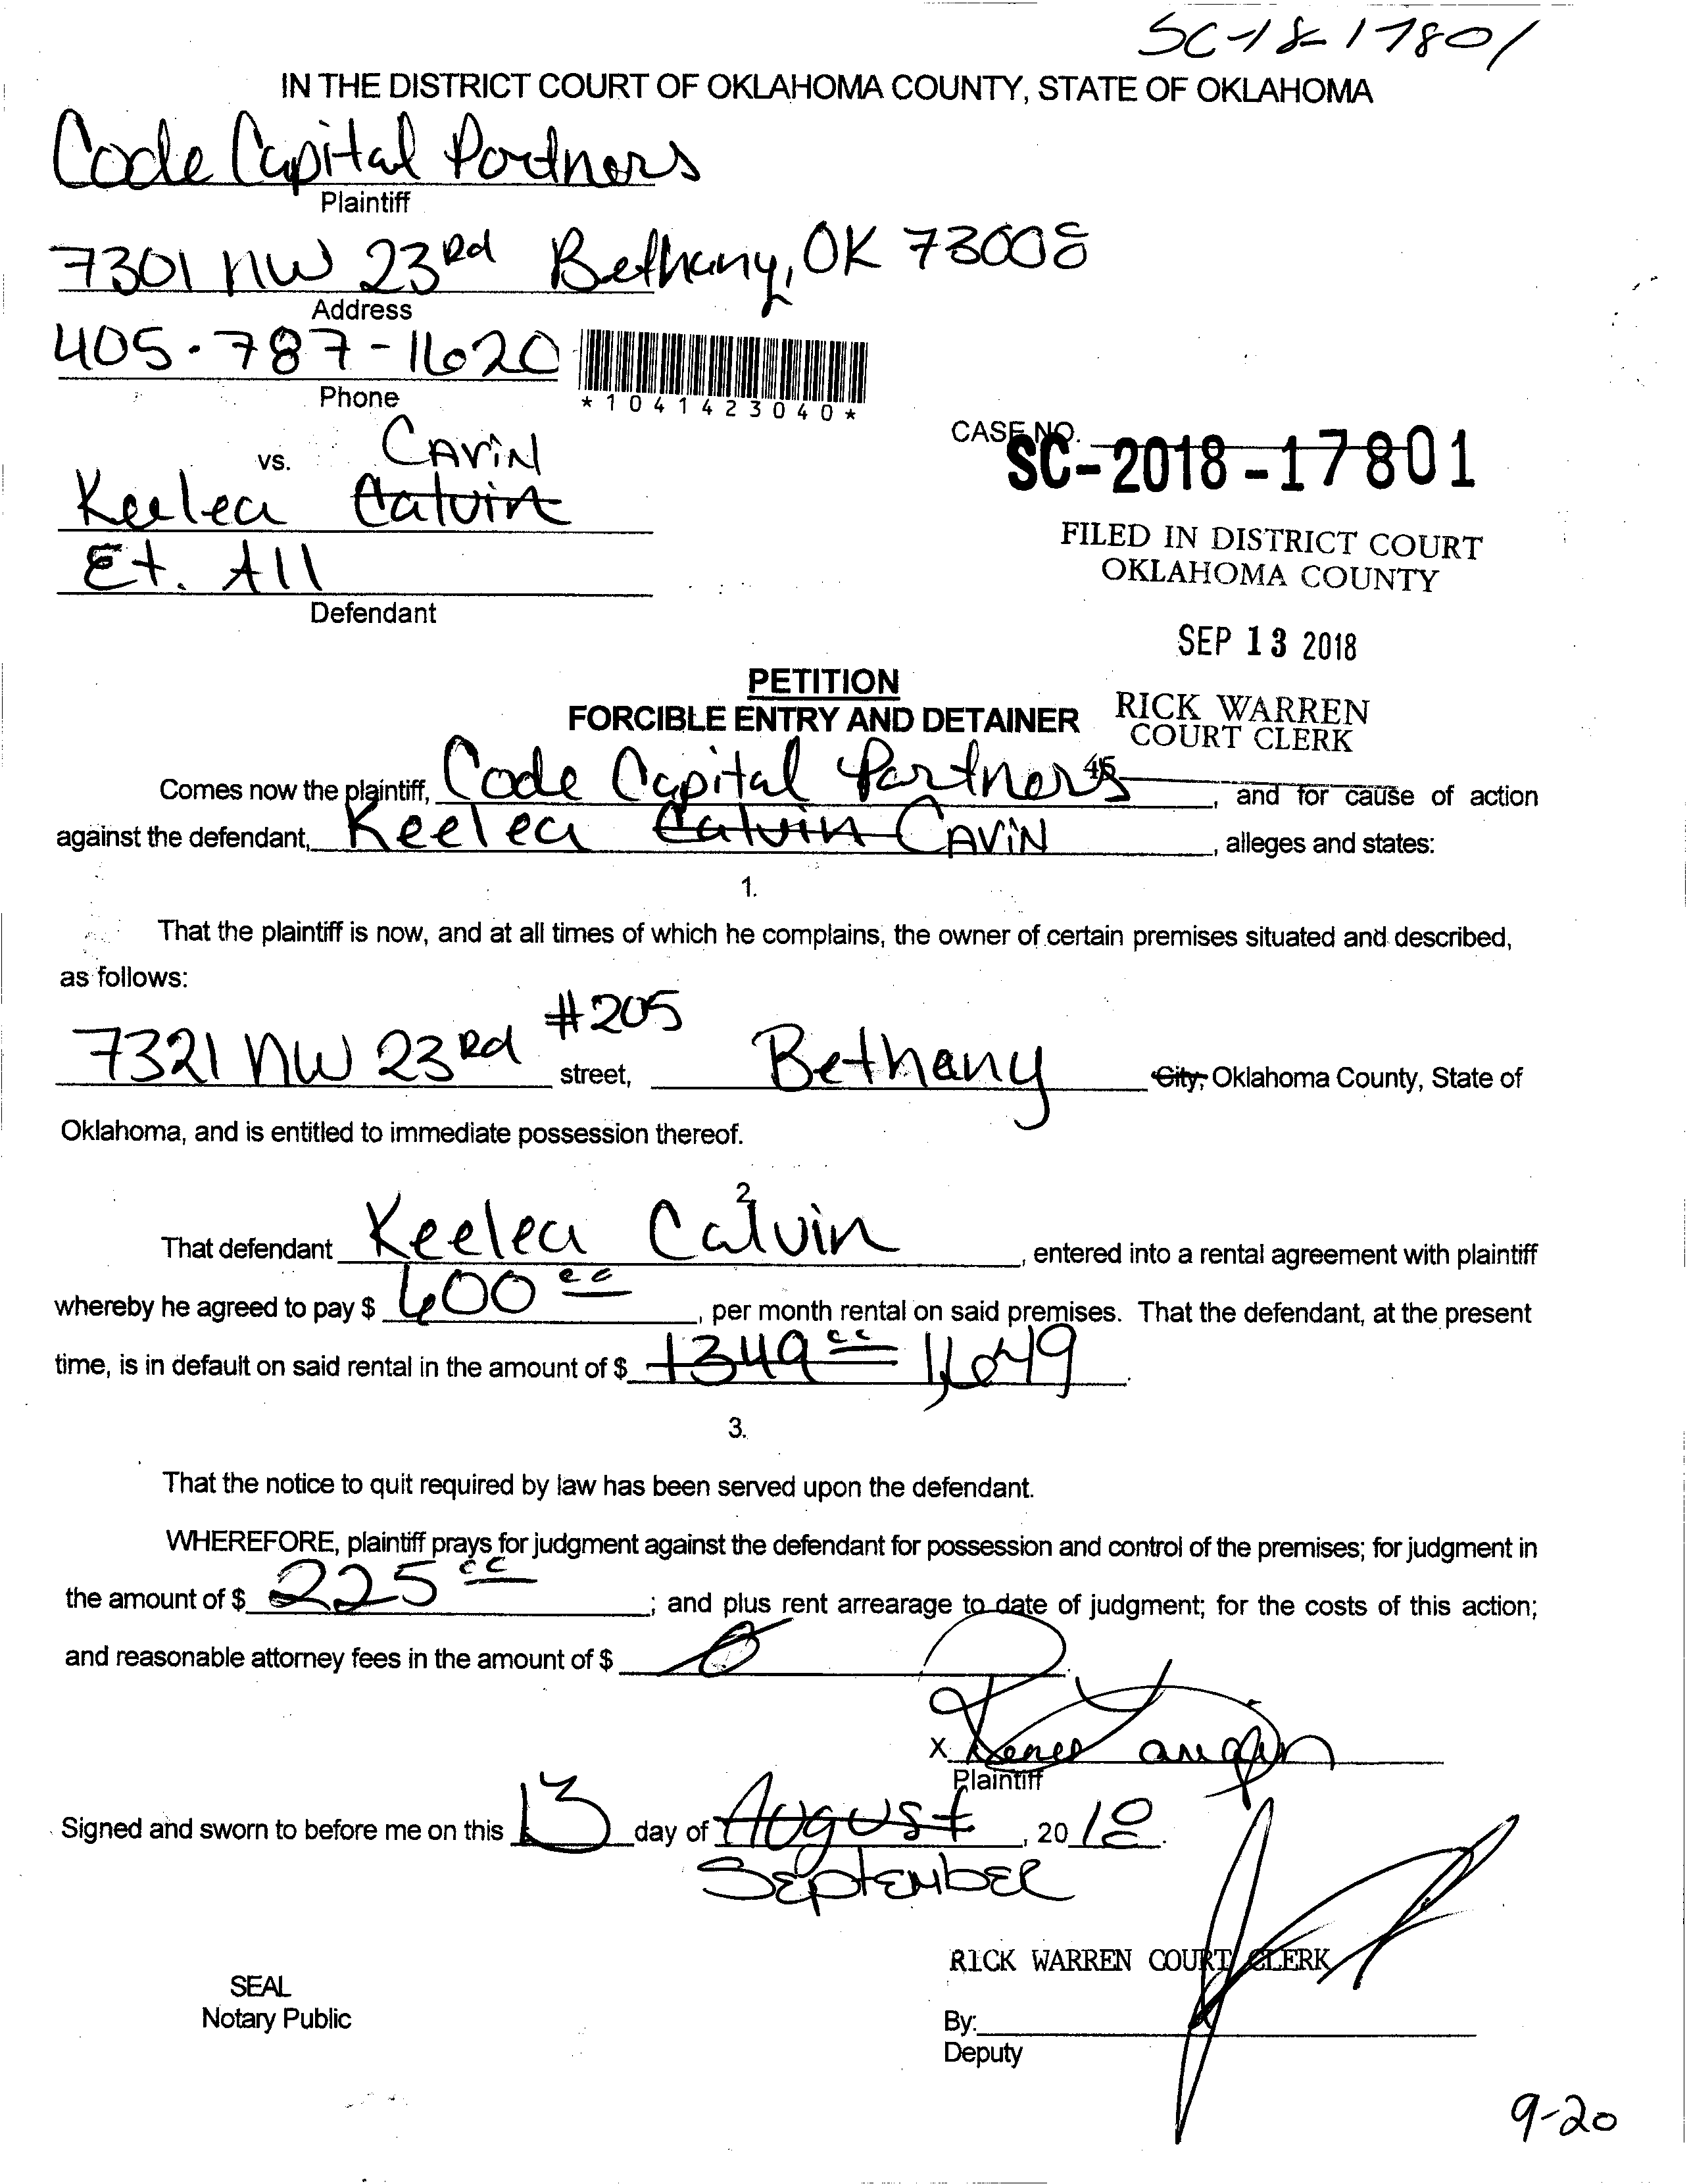 SC-18-17801
IN THE DISTRICT COURT OF OKLAHOMA COUNTY, STATE OF OKLAHOMA
Code Capital Partners
Plaintiff
7301 NW 23rd Bethany, OK 73008
Address
405-787-1620
Phone
*1041423040*
CASE NO.
SC-2018-17801
vs. CAViN
Keelea Calvin
Et. All
Defendant
FILED IN DISTRICT COURT
OKLAHOMA COUNTY
SEP 13 2018
PETITION
FORCIBLE ENTRY AND DETAINER
RICK WARREN
COURT CLERK
45
Comes now the plaintiff, Code Capital Partners, and for cause of action
against the defendant, Keelea Calvin CAViN, alleges and states:
1.
That the plaintiff is now, and at all times of which he complains, the owner of certain premises situated and described,
as follows:
7321 NW 23rd #205 street, Bethany City, Oklahoma County, State of
Oklahoma, and is entitled to immediate possession thereof.
2.
That defendant Keelea Calvin, entered into a rental agreement with plaintiff
whereby he agreed to pay $ 600 00, per month rental on said premises. That the defendant, at the present
time, is in default on said rental in the amount of $ 1349 00 1,649.
3.
That the notice to quit required by law has been served upon the defendant.
WHEREFORE, plaintiff prays for judgment against the defendant for possession and control of the premises; for judgment in
the amount of $ 225 00; and plus rent arrearage to date of judgment; for the costs of this action;
and reasonable attorney fees in the amount of $ 0.
X
Plaintiff
Signed and sworn to before me on this 13 day of August, 2018.
SEptEMbER
RICK WARREN COURT CLERK
SEAL
Notary Public
By:
Deputy
9-20